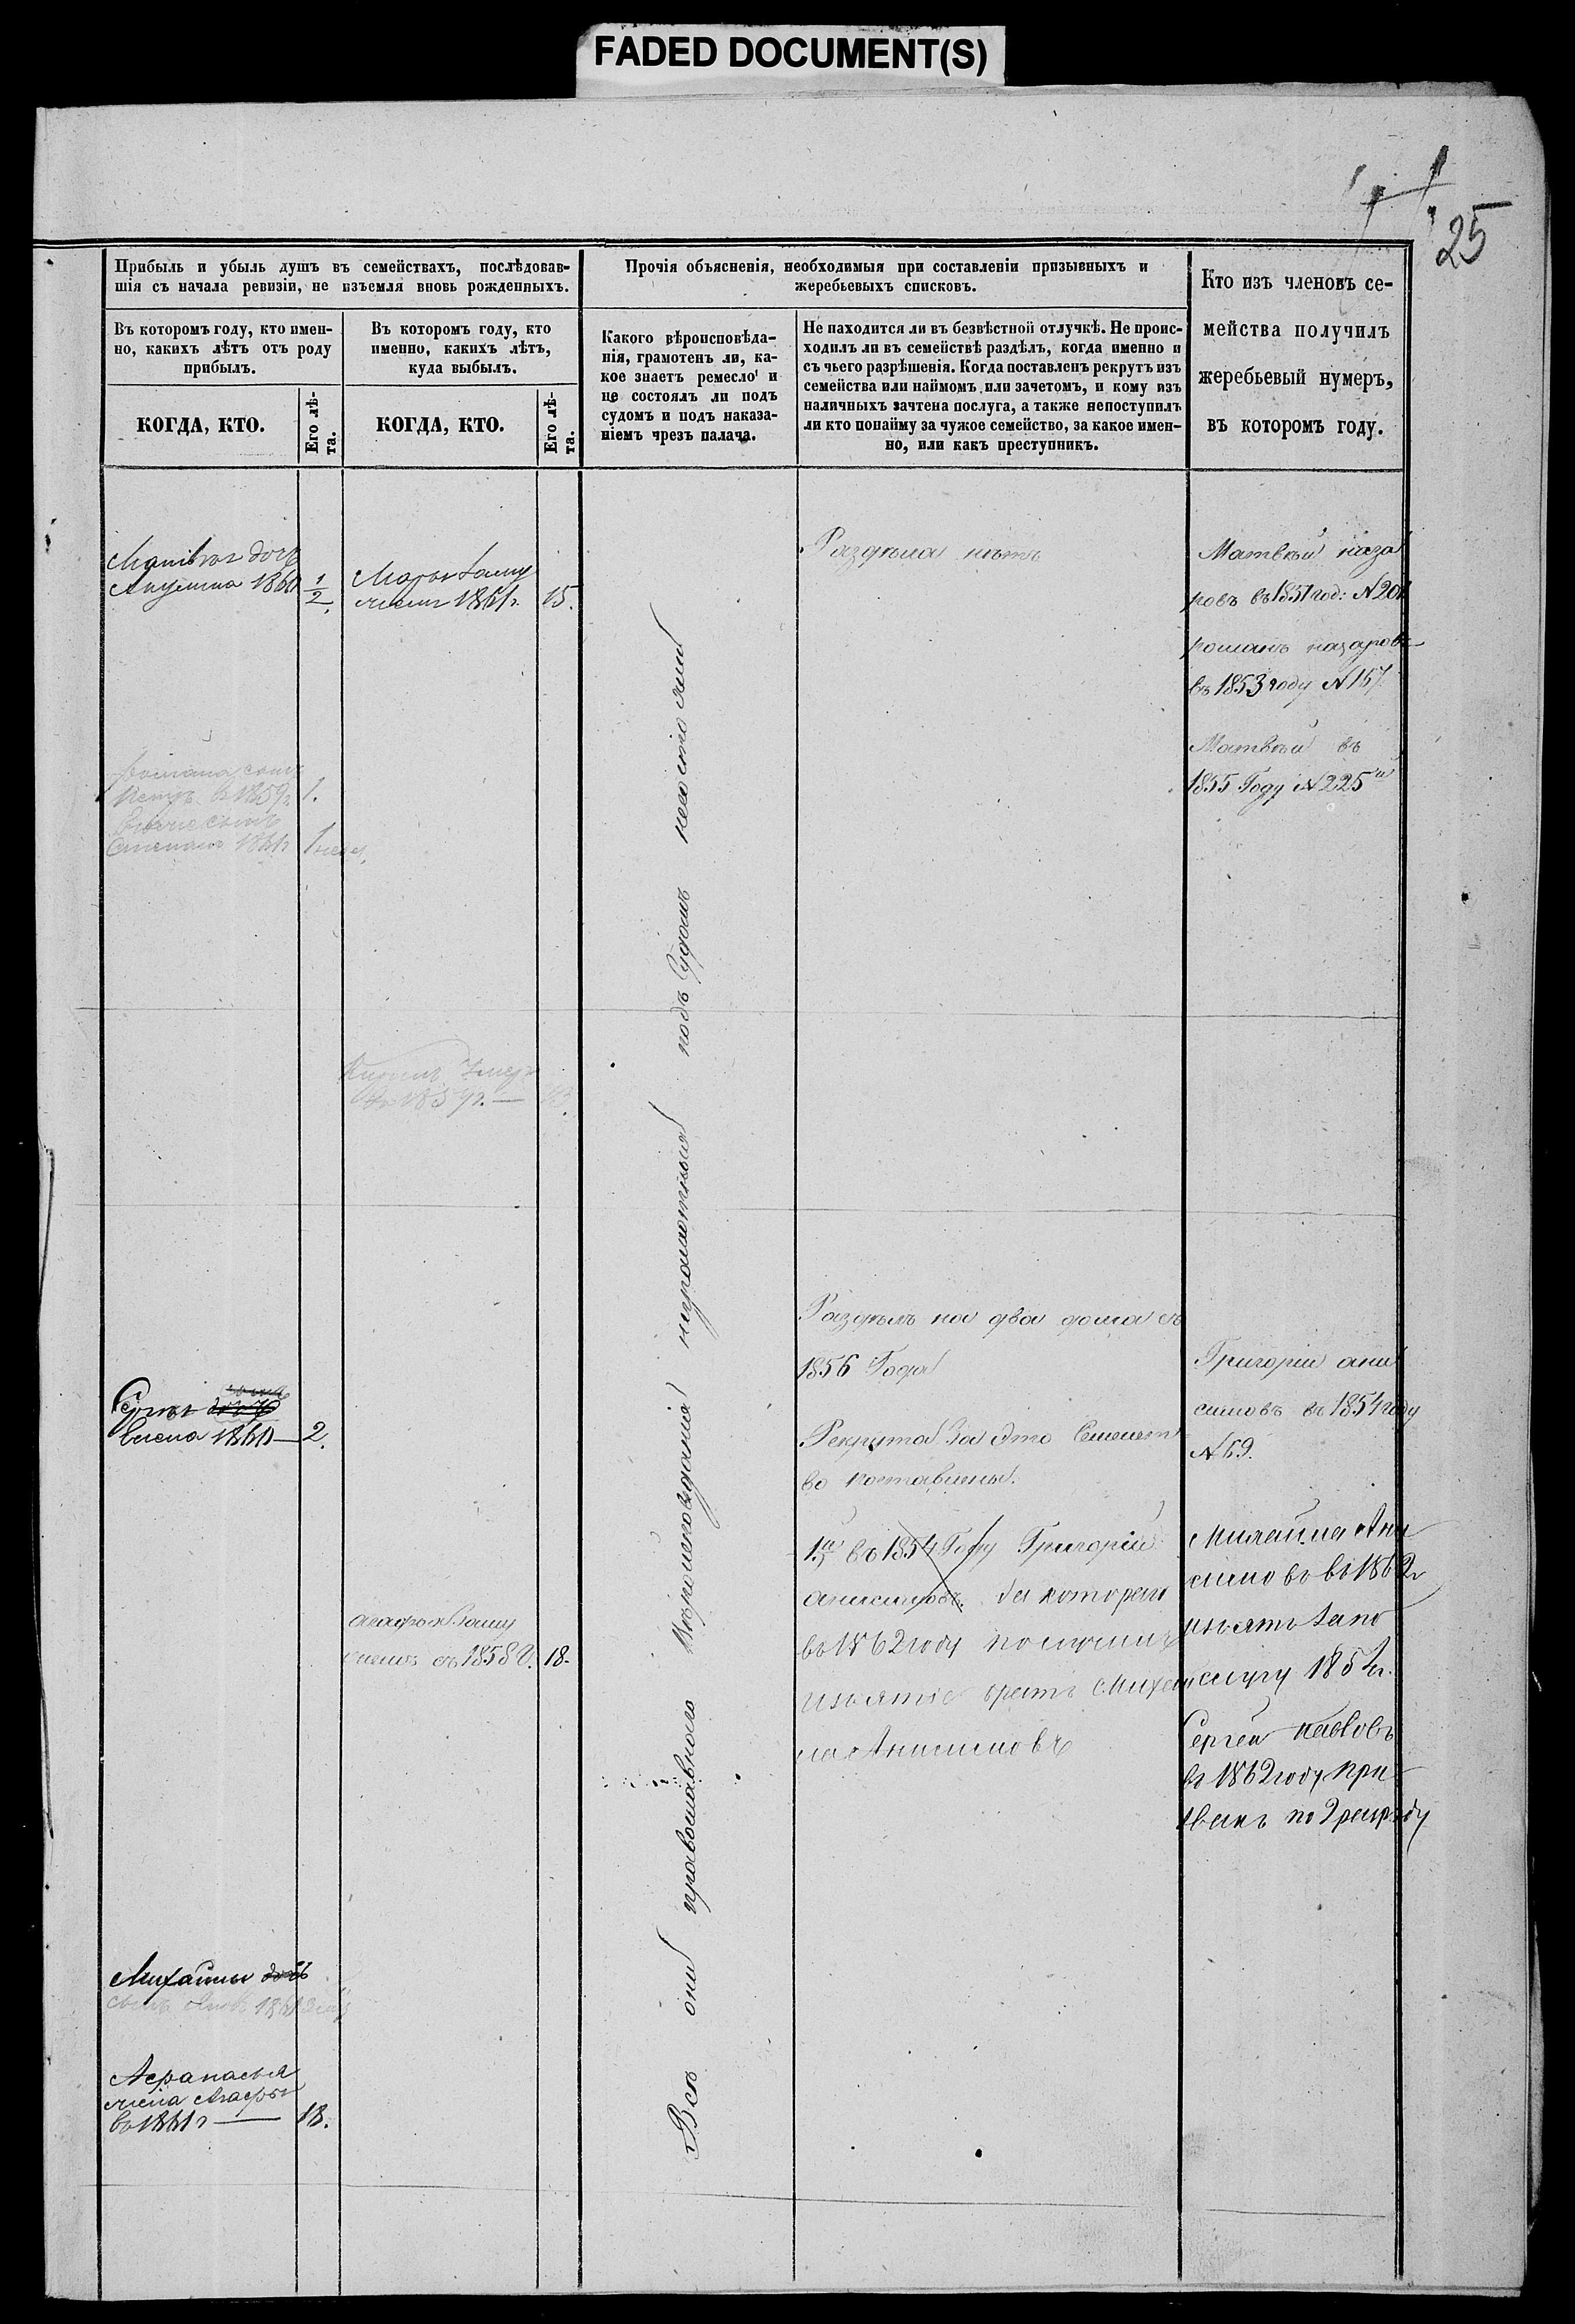 FADED DOCUMENT(S)
25
Прибыль и убыль душъ въ семействахъ, послѣдовав-
шія съ начала ревизіи, не изъемля вновь рожденныхъ.
Прочія объясненія, необходимыя при составленіи призывныхъ и
жеребьевыхъ списковъ.
Кто изъ членовъ се-
мейства получилъ
жеребьевый нумеръ,
въ которомъ году.
Въ которомъ году, кто имен-
но, какихъ лѣтъ отъ роду
прибылъ.
Въ которомъ году, кто
именно, какихъ лѣтъ,
куда выбылъ.
Какого вѣроисповѣда-
нія, грамотенъ ли, ка-
кое знаетъ ремесло и
не состоялъ ли подъ
судомъ и подъ наказа-
ніемъ чрезъ палача.
Не находится ли въ безвѣстной отлучкѣ. Не проис-
ходилъ ли въ семействѣ раздѣлъ, когда именно и
съ чьего разрѣшенія. Когда поставленъ рекрутъ изъ
семейства или наймомъ или зачетомъ, и кому изъ
наличныхъ зачтена послуга, а также непоступилъ
ли кто понайму за чужое семейство, за какое имен-
но, или какъ преступникъ.
КОГДА, КТО.
Его лѣ-
та.
КОГДА, КТО.
Его лѣ-
та.
дочь
Акулина 1860 1/2
Марья Заму
жемъ 1861г. 15.
Раздѣла нѣтъ
Матвѣй наза
ровъ въ 1851 год: N 201
романъ назаровъ
въ 1853 году N 167
Матвѣй въ
1855 Году N 225
Романа сынъ
Петръ в 1859г 1.
сынъ
Степанъ 1861г 1
Умеръ
1859г. —
Раздѣлъ на два дома съ
1856 Года
Рекрута За Это Семейст
во поставлены.
1й въ 1854 Году Григорій
анисимовъ. за котораго
въ 1862 году получилъ
изъятіе братъ Михай
ла Анисимовъ
Григоріи ани
симовъ въ 1854 году
N 69.
Михайла Ани
симовъ в 1862г
изъятъ за по
слугу 1854г.
Сергей Павловъ
в 1862 году при
званъ по 2 разряду
1860 — 2.
Агафья Заму
жемъ съ 1858 г. 18.
Михайлы дочь
сынъ 1861
Афанасья
жена Агафья
в 1861г — 18.
Всѣ они православнаго Вѣроисповѣданія неграмотныя подъ Судомъ несостояли